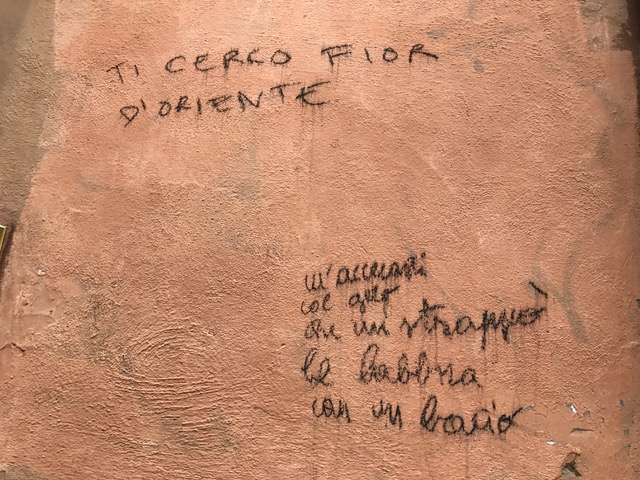 TI CERCO FIOR
D'ORIENTE
m'accecasti
col
che mi strappò
le labbra
con un bacio